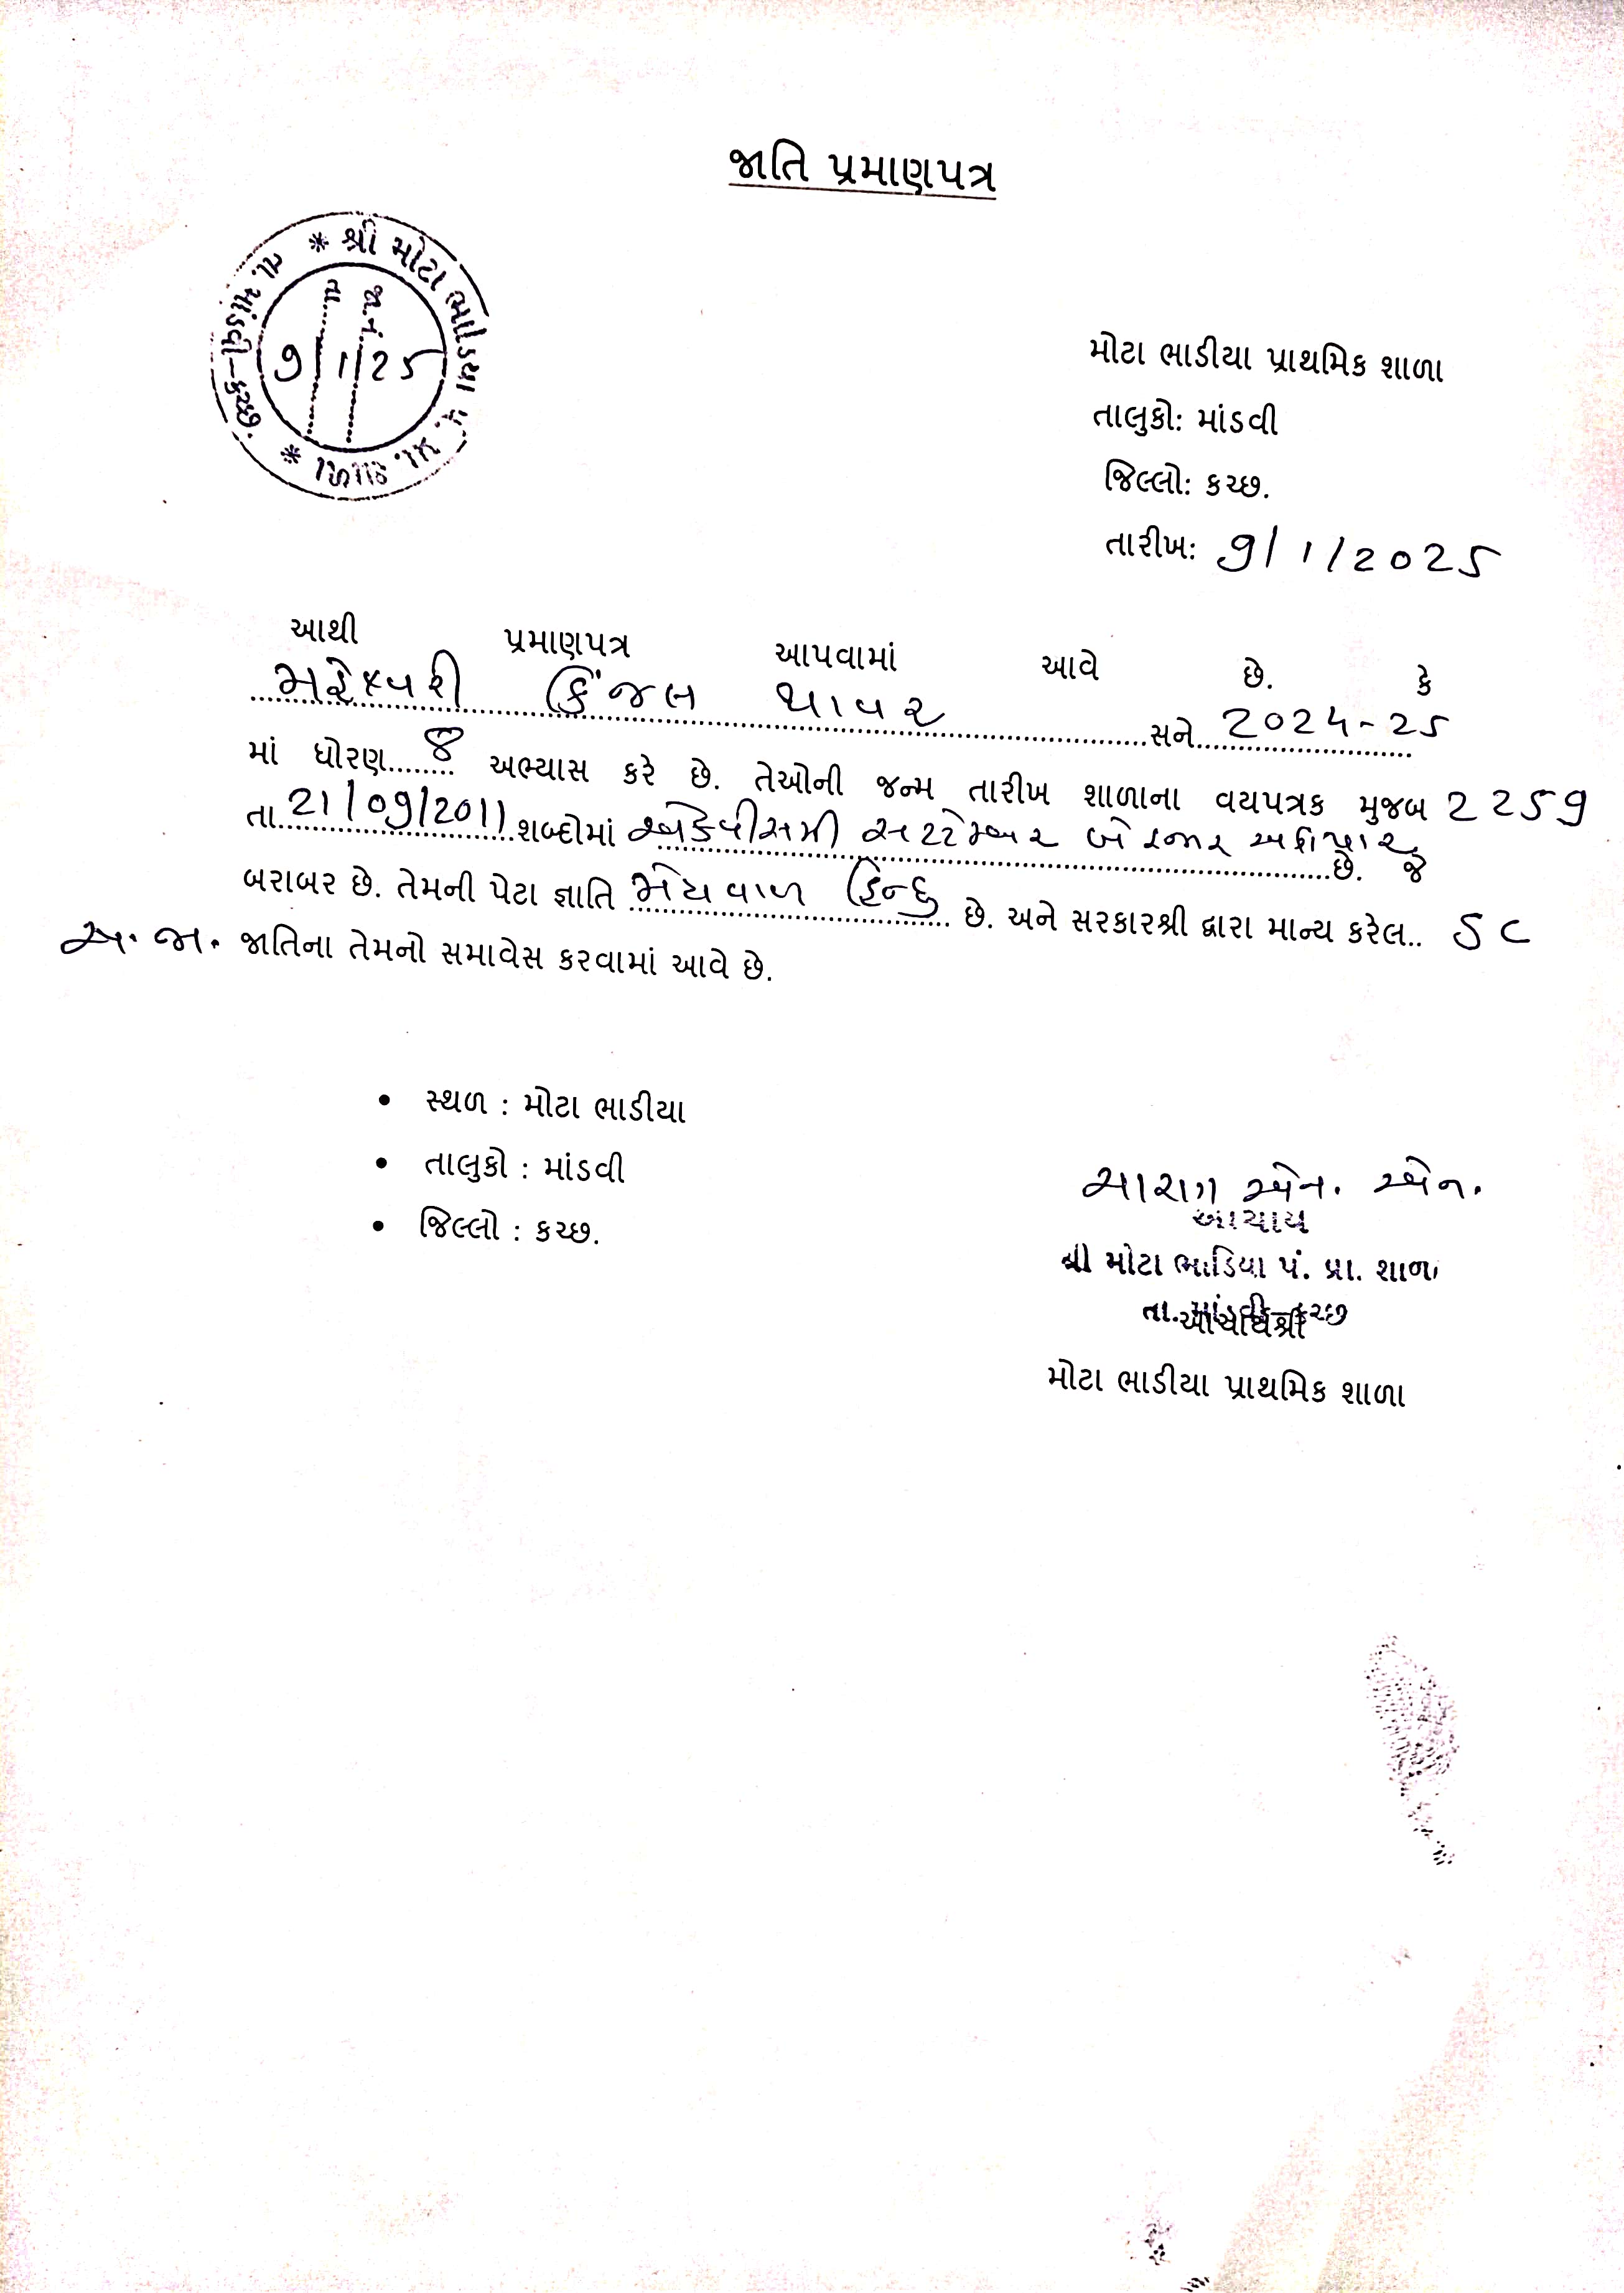 જાતિ પ્રમાણપત્ર
* શ્રી મોટા ભાડિયા પં. પ્રા. શાળા * તા. માંડવી-કચ્છ.
જા.નં.
તા.
9/1/25
મોટા ભાડીયા પ્રાથમિક શાળા
તાલુકો: માંડવી
જિલ્લો: કચ્છ.
તારીખ: 9/1/2025
આથી પ્રમાણપત્ર આપવામાં આવે છે. કે
મહેશ્વરી કિંજલ થાવર સને 2024-25
માં ધોરણ 8 અભ્યાસ કરે છે. તેઓની જન્મ તારીખ શાળાના વયપત્રક મુજબ 2259
તા 21/09/2011 શબ્દોમાં એકવીસમી સપ્ટેમ્બર બે હજાર અગિયાર છે. જે
બરાબર છે. તેમની પેટા જ્ઞાતિ મેઘવાળ હિન્દુ છે. અને સરકારશ્રી દ્વારા માન્ય કરેલ.. SC
અ. જા. જાતિના તેમનો સમાવેસ કરવામાં આવે છે.
• સ્થળ : મોટા ભાડીયા
• તાલુકો : માંડવી
• જિલ્લો : કચ્છ.
એન. એન.
આચાર્ય
શ્રી મોટા ભાડિયા પં. પ્રા. શાળા
તા. માંડવી-કચ્છ
આચાર્યશ્રી
મોટા ભાડીયા પ્રાથમિક શાળા